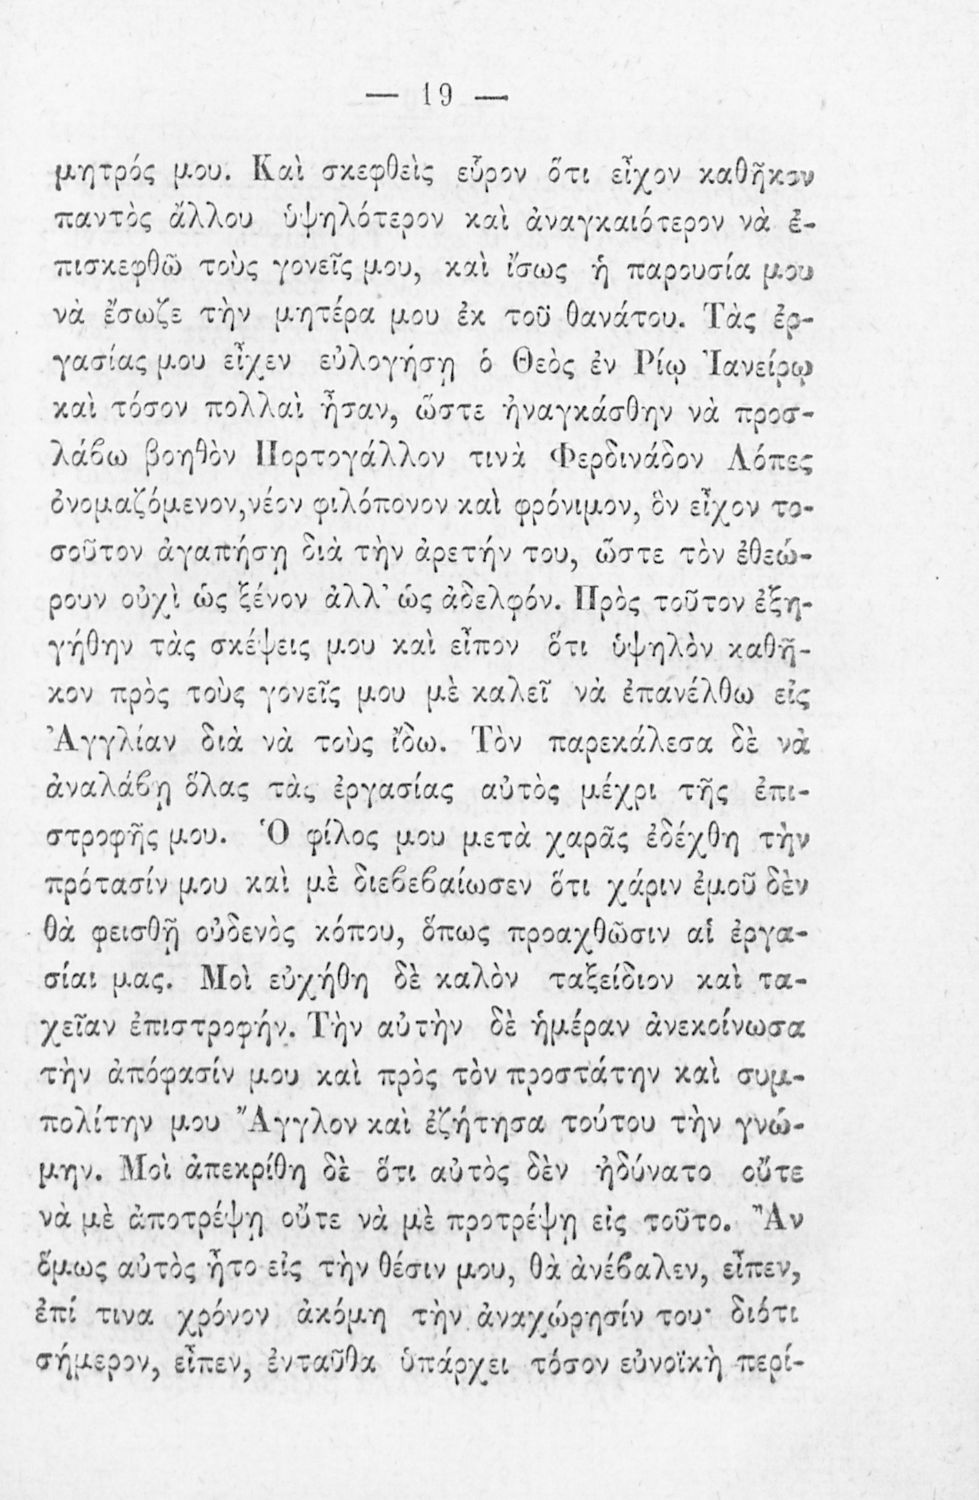 — 19 —
μητρός μου. Καὶ σκεφθεὶς εὗρον ὅτι εἶχον καθῆκον
παντὸς ἄλλου ὑψηλότερον καὶ ἀναγκαιότερον νὰ ἐ-
πισκεφθῶ τοὺς γονεῖς μου, καὶ ἴσως ἡ παρουσία μου
νὰ ἔσωζε τὴν μητέρα μου ἐκ τοῦ θανάτου. Τὰς ἐρ-
γασίας μου εἶχεν εὐλογήσῃ ὁ Θεὸς ἐν Ρίῳ Ἰανείρῳ
καὶ τόσον πολλαὶ ἦσαν, ὥστε ἠναγκάσθην νὰ προσ-
λάβω βοηθὸν Πορτογάλλον τινὰ Φερδινάδον Λόπες
ὀνομαζόμενον,νέον φιλόπονον καὶ φρόνιμον, ὃν εἶχον το-
σοῦτον ἀγαπήσῃ διὰ τὴν ἀρετήν του, ὥστε τὸν ἐθεώ-
ρουν οὐχὶ ὡς ξένον ἀλλ' ὡς ἀδελφόν. Πρὸς τοῦτον ἐξη-
γήθην τὰς σκέψεις μου καὶ εἶπον ὅτι ὑψηλὸν καθῆ-
κον πρὸς τοὺς γονεῖς μου μὲ καλεῖ νὰ ἐπανέλθω εἰς
Ἀγγλίαν διὰ νὰ τοὺς ἴδω. Τὸν παρεκάλεσα δὲ νὰ
ἀναλάβῃ ὅλας τὰς ἐργασίας αὐτὸς μέχρι τῆς ἐπι-
στροφῆς μου. Ὁ φίλος μου μετὰ χαρᾶς ἐδέχθη τὴν
πρότασίν μου καὶ μὲ διεβεβαίωσεν ὅτι χάριν ἐμοῦ δὲν
θὰ φεισθῇ οὐδενὸς κόπου, ὅπως προαχθῶσιν αἱ ἐργα-
σίαι μας. Μοὶ εὐχήθη δὲ καλὸν ταξείδιον καὶ τα-
χεῖαν ἐπιστροφήν. Τὴν αὐτὴν δὲ ἡμέραν ἀνεκοίνωσα
τὴν ἀπόφασίν μου καὶ πρὸς τὸν προστάτην καὶ συμ-
πολίτην μου Ἄγγλον καὶ ἐζήτησα τούτου τὴν γνώ-
μην. Μοὶ ἀπεκρίθη δὲ ὅτι αὐτὸς δὲν ἠδύνατο οὔτε
νὰ μὲ ἀποτρέψῃ οὔτε νὰ μὲ προτρέψῃ εἰς τοῦτο. Ἂν
ὅμως αὐτὸς ἦτο εἰς τὴν θέσιν μου, θὰ ἀνέβαλεν, εἶπεν,
ἐπί τινα χρόνον ἀκόμη τὴν ἀναχώρησίν του· διότι
σήμερον, εἶπεν, ἐνταῦθα ὑπάρχει τόσον εὐνοϊκὴ περί-